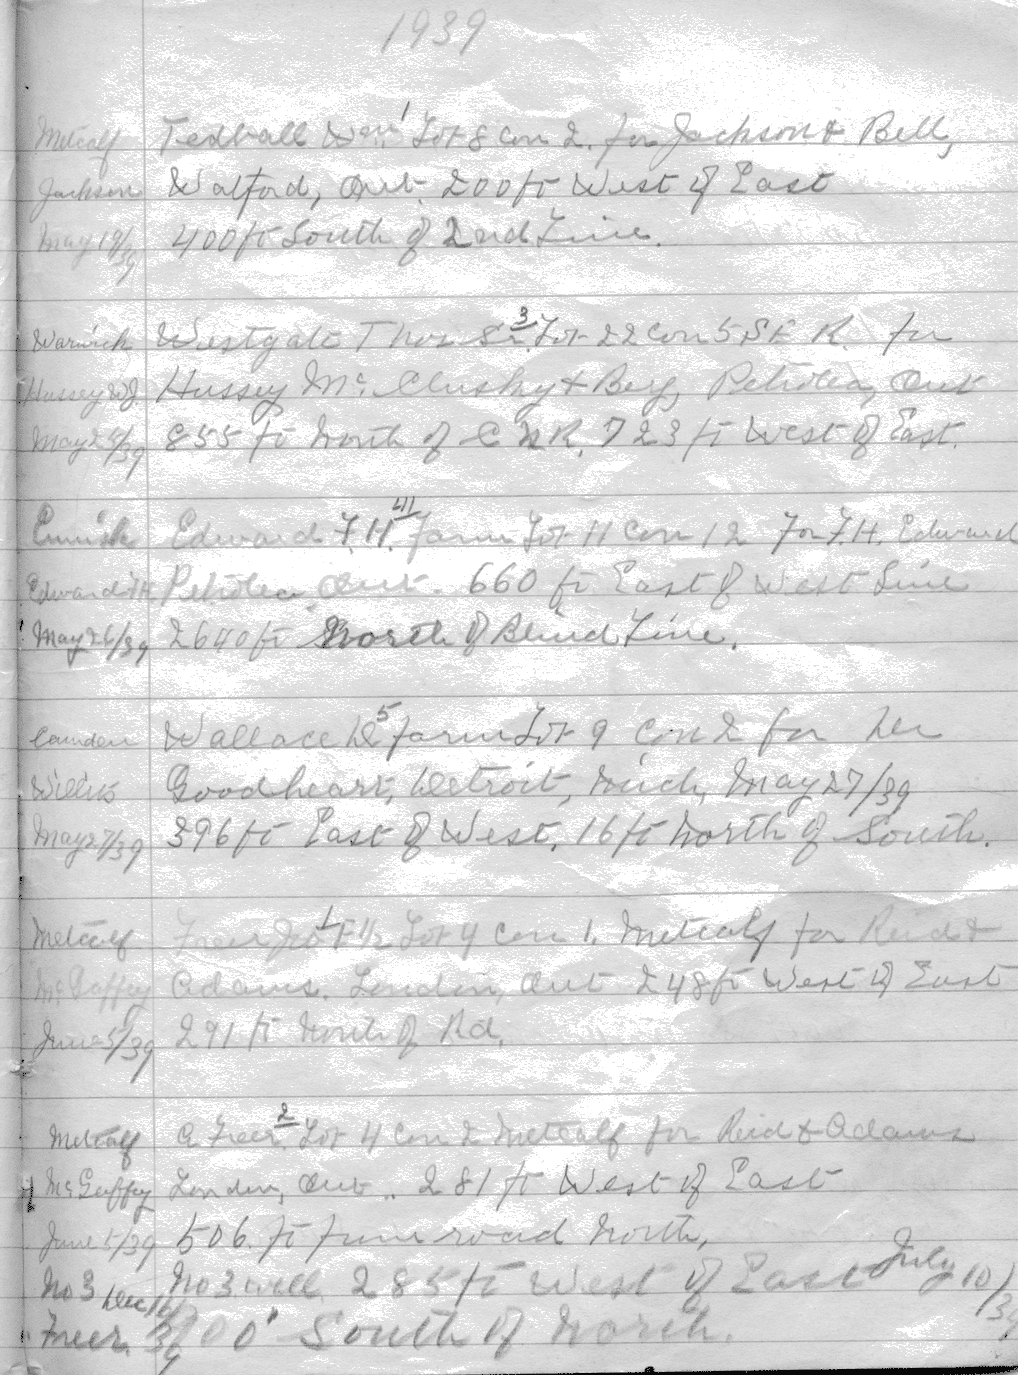 1939
Metcalf Tedball Wm 1 Lot 8 Con 2. for Jackson & Bell,
Jackson Watford, Ont. 200 ft West of East
May 19/39 400 ft South of 2nd Line.
Warwick Westgate Thos Sr. 3 Lot 22 Con 5 S E R. for
Hussey Hussey Mc Clusky & Berg, Petrolea, Ont
May 25/39 855 ft North of C N R, 723 ft West of East.
Edward F. H. 41 farm Lot 11 Con 12 For F. H. Edward
Edward FH Petrolea Ont. 660 ft East of West Line
May 26/39 2640 ft North of Blind Line.
Camden Wallace D 5 farm Lot 9 Con 2 for
Willis Goodheart, Detroit, Mich, May 27/39
May 27/39 396 ft East of West, 16 ft North of South.
Metcalf Freer Jno 1 E 1/2 Lot 4 Con 1. Metcalf for Reid &
Mc Gaffey Adams. London, Ont 248 ft West of East
June 5/39 291 ft North of Rd,
Metcalf A Freer 2 Lot 4 Con 2 Metcalf for Reid & Adams
Mc Gaffey London, Ont .. 281 ft West of East
June 5/39 506 ft from road North,
No 3 No 3 well 285 ft West of East July 10/39
Dec 16/39
Freer South of North.